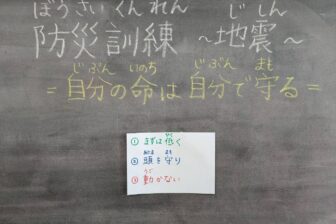 ぼうさいくんれん じしん
防災訓練 ～地震～
じぶん いのち じぶん まも
=自分の命は自分で守る=
ひく
①まずは低く
あたま まも
②頭を守り
うご
③動かない